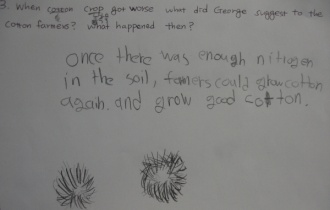 3. When cotton crop got worse what did George suggest to the
cotton farmers? What happened then?
Once there was enough nitrogen
in the soil, famers could grow cotton
again. and grow good cotton.